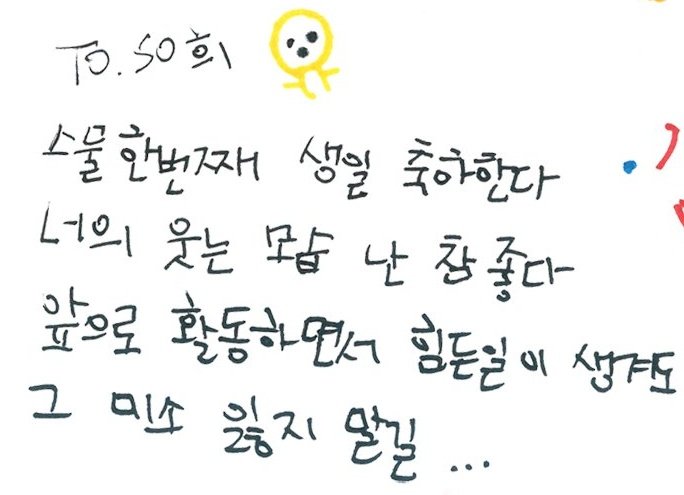 TO. SO희
스물한번째 생일 축하한다
너의 웃는 모습 난 참 좋다
앞으로 활동하면서 힘든일이 생겨도
그 미소 잃지 말길 ...